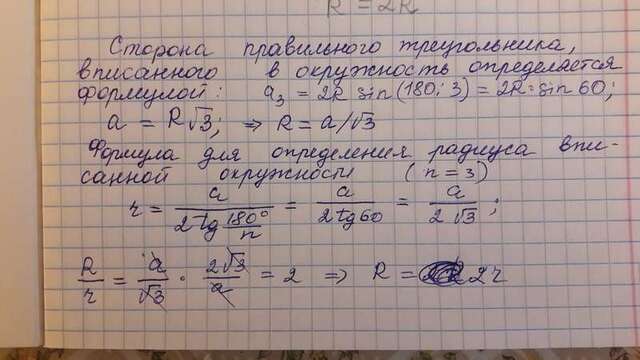 R = 2R
Сторона правильного треугольника,
вписанного в окружность определяется
формулой: a₃ = 2R sin(180:3) = 2R·sin 60;
a = R√3; ⇒ R = a/√3
Формула для определения радиуса впи-
санной окружности (n = 3)
r = a/(2 tg 180°/n) = a/(2 tg 60) = a/(2√3);
R/r = a/√3 · 2√3/a = 2 ⇒ R = 2r